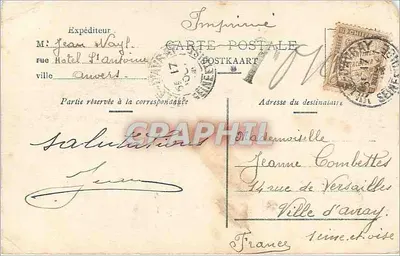 Imprimé
Expéditeur
CARTE POSTALE
POSTKAART
M: Jean Nayl
rue Hotel St Antoine
ville Anvers
Partie réservée à la correspondance
Adresse du destinataire
CARTHAPHILE
salutations
Jean
Mademoiselle
Jeanne Combettes
14 rue de Versailles
Ville d'avray
Seine et oise
France